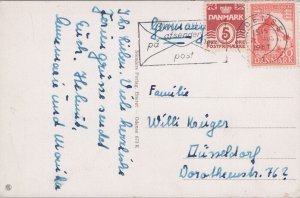 Ihr Lieben. Viele herzliche
Feriengrüsse sendet
Euch Helmut,
Annemarie und Monika
Germany
afsender
på
post
DANMARK
5
POSTFRIMÆRKE
DANMARK
Familie
Willi Krüger
Düsseldorf
Dorotheenstr. 76?